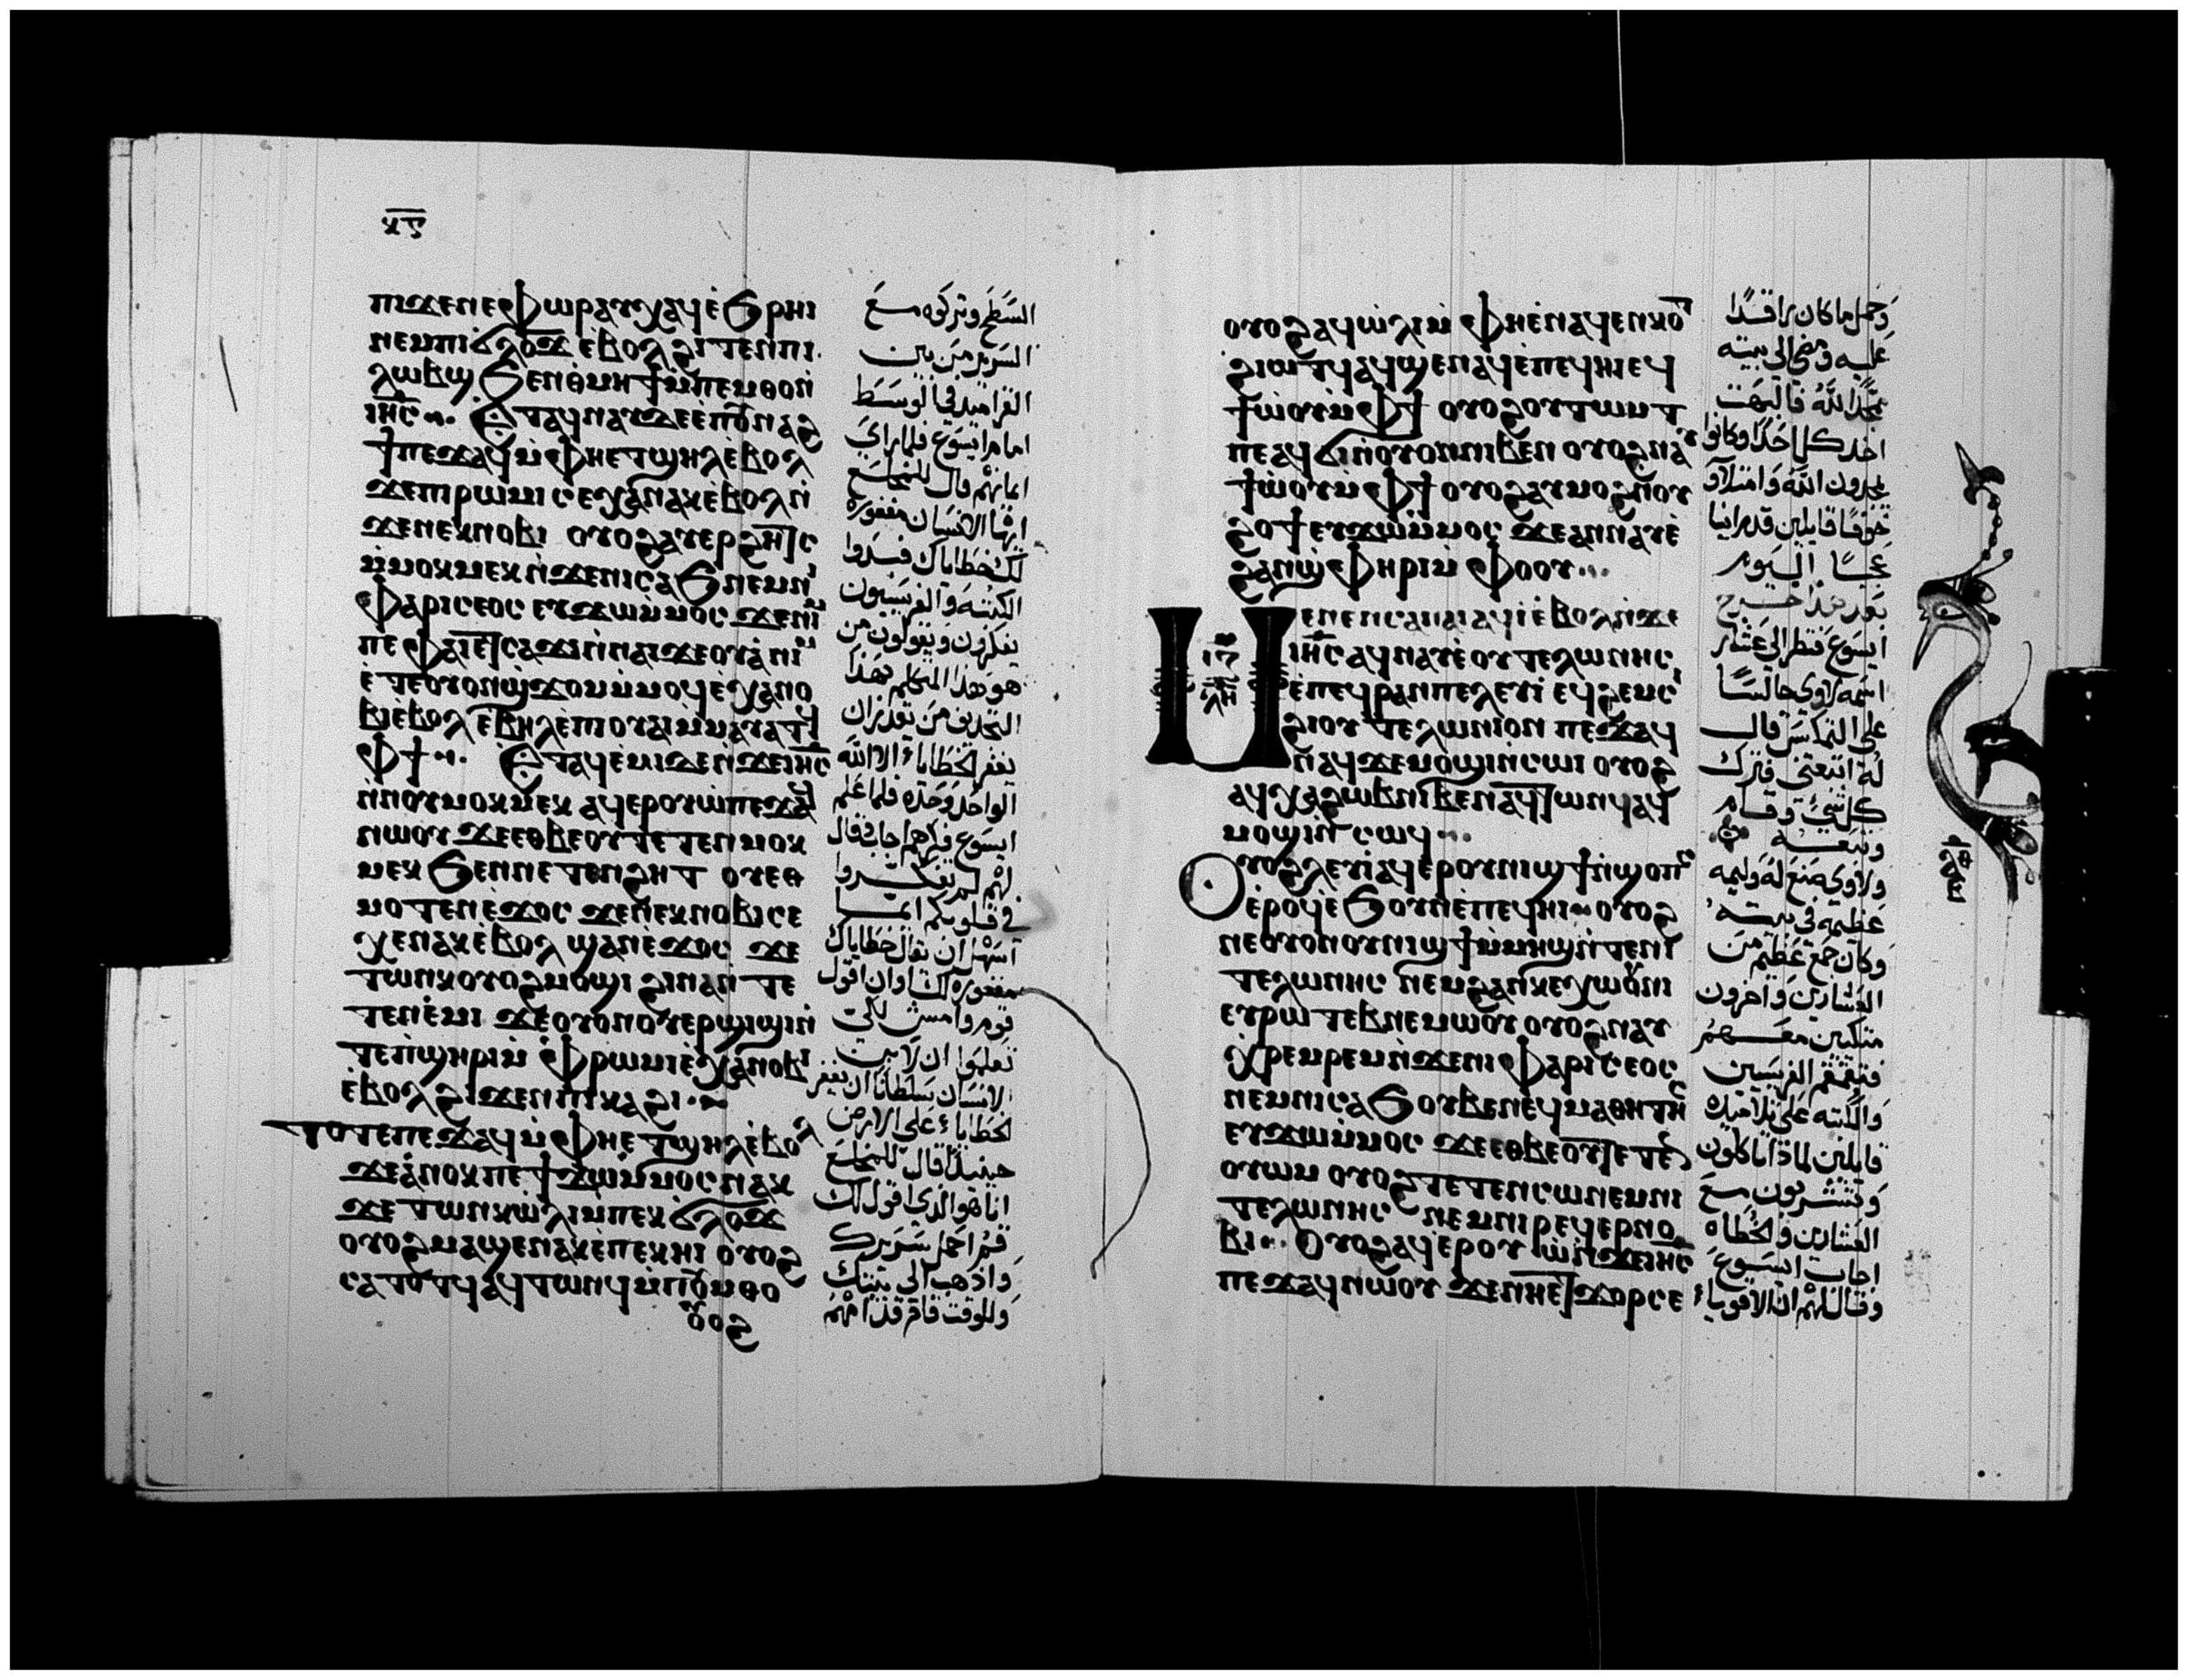 ⲡⲓϫⲉⲛⲉⲫⲱⲣⲁⲩⲭⲁϥⲉ̀ϧⲣⲏⲓ
ⲛⲉⲙⲡⲓϭⲗⲟϫ ⲉⲃⲟⲗϩⲓⲧⲉⲛⲛⲓ
ⲗⲱⲃϣ ϧⲉⲛⲑⲙⲏϯⲙ̀ⲡⲉⲙⲑⲟⲛ̀
ⲓⲏ̅ⲥ̅ ⲉ̀ⲧⲁϥⲛⲁⲩϫⲉⲉⲡⲟⲩⲛⲁϩ
ϯⲡⲉϫⲁϥⲙ̀ⲫⲏⲉⲧϣⲏⲗⲉ̀ⲃⲟⲗ
ϫⲉⲡⲓⲣⲱⲙⲓ ⲥⲉⲭⲁⲛⲁⲕⲉ̀ⲃⲟⲗⲛ̀
ϫⲉⲛⲉⲕⲛⲟⲃⲓ ⲟⲩⲟϩⲁⲩⲉⲣϩⲏⲧⲥ
ⲙ̀ⲙⲟⲕⲙⲉⲕⲛ̀ϫⲉⲛⲓⲥⲁϧ ⲛⲉⲙⲛⲓ
ⲫⲁⲣⲓⲥⲉⲟⲥ ⲉⲩϫⲱⲙ̀ⲙⲟⲥ ϫⲉⲛⲓⲙ
ⲡⲉ ⲫⲁⲓⲉⲧⲥⲁϫⲓⲛ̀ⲛⲁⲓϫⲉⲟⲩⲁ ⲛⲓⲙ
ⲉ̀ⲧⲉⲟⲩⲟⲛϣϫⲟⲙⲙ̀ⲙⲟϥⲉ̀ⲭⲁⲛⲟ
ⲃⲓⲉ̀ⲃⲟⲗ ⲉⲃⲏⲗⲉ̀ⲡⲓⲟⲩⲁⲓⲙ̀ⲙⲁⲩⲁⲧϥ
ⲫϯ ⲉ̀ⲧⲁϥⲉ̀ⲙⲓϫⲉⲛ̀ϫⲉⲓⲏ̅ⲥ̅
ⲛ̀ⲛⲟⲩⲙⲟⲕⲙⲉⲕ ⲁϥⲉⲣⲟⲩⲱⲡⲉϫⲁϥ
ⲛⲱⲟⲩ ϫⲉⲉⲑⲃⲉⲟⲩⲧⲉⲧⲉⲛⲙⲟⲕ
ⲙⲉⲕ ϧⲉⲛⲛⲉⲧⲉⲛϩⲏⲧ ⲟⲩⲉⲑ
ⲙⲟⲧⲉⲛⲉ̀ϫⲟⲥ ϫⲉⲛⲉⲕⲛⲟⲃⲓⲥⲉ
ⲭⲉⲛⲁⲕⲉ̀ⲃⲟⲗ ϣⲁⲛⲉ̀ϫⲟⲥ ϫⲉ
ⲧⲱⲛⲕⲟⲩⲟϩⲙⲟϣⲓ ϩⲓⲛⲁⲛ̀ⲧⲉ
ⲧⲉⲛⲉ̀ⲙⲓ ϫⲉⲟⲩⲟⲛⲟⲩⲉⲣϣⲓϣⲓⲛ̀
ⲧⲉⲡϣⲏⲣⲓⲙ̀ⲫⲣⲱⲙⲓⲉ̀ⲭⲁⲛⲟⲃⲓ
ⲉ̀ⲃⲟⲗϩⲓϫⲉⲛⲡⲓⲕⲁϩⲓ
ⲧⲟⲧⲉⲡⲉϫⲁϥⲙ̀ⲫⲏⲉⲧϣⲏⲗⲉ̀ⲃⲟⲗ
ϫⲉⲁ̀ⲛⲟⲕⲡⲉϯϫⲱⲙ̀ⲙⲟⲥⲛⲁⲕ
ϫⲉⲧⲱⲛⲕⲱ̀ⲗⲓⲙⲡⲉⲕϭⲗⲟϫ
ⲟⲩⲟϩⲙⲁϣⲉⲛⲁⲕⲉ̀ⲡⲉⲕⲏⲓ ⲟⲩⲟϩ
ⲥⲁⲧⲟⲧϥⲁϥⲧⲱⲛϥⲙ̀ⲡⲟⲩⲙⲑⲟ
السَّطحَ وتركوه مع
السرير من بين
القراميد في الوسط
امام ايسوع فلما راى
ايمانهم قال للمخلع
ايها الانسان مغفورة
لك خطاياك فبدوا
الكتبه والفريسيون
يفكرون ويقولون من
هو هذا المتكلم بهذا
التجديف من يقدر ان
يغفر الخطايا الا الله
الواحد وحده فلما علم
ايسوع فكرهم اجاب فقال
لهم لم تفكروا
في قلوبكم ايما
اسهل ان يقال خطاياك
مغفورة لك اوان اقول
قوم وامشى لكي
تعلموا ان لابن
الانسان سلطانا ان يغفر
الخطايا على الارض
حينيذ قال للمخلع
انا هو الذي اقول لك
قم احمل سريرك
واذهب الى بيتك
وللوقت قام قدامهم
ⲟⲩⲟϩⲁϥⲱ̀ⲗⲓⲙ̀ ⲫⲏⲉ̀ⲛⲁϥⲉⲛⲕⲟⲧ
ϩⲓⲱⲧϥⲁϥϣⲉⲛⲁϥⲉ̀ⲡⲉϥⲏⲓⲉϥ
ϯⲱ̀ⲟⲩⲙ̀ⲫϯ ⲟⲩⲟϩⲟⲩⲧⲱⲙⲧ
ⲡⲉⲁϥϭⲓⲛ̀ⲟⲩⲟⲛⲛⲓⲃⲉⲛ ⲟⲩⲟϩⲛⲁⲩ
ϯⲱ̀ⲟⲩⲙ̀ⲫϯ ⲟⲩⲟϩⲁⲩⲙⲟϩⲛ̀ⲟⲩ
ϩⲟϯⲉⲩϫⲱⲙ̀ⲙⲟⲥ ϫⲉⲁⲛⲛⲁⲩⲉ̀
ϩⲁⲛϣⲫⲏⲣⲓⲙ̀ ⲫⲟⲟⲩ
ⲙⲉⲛⲉⲛⲥⲁⲛⲁⲓⲁϥⲓ̀ⲉⲃⲟⲗⲛ̀ϫⲉ
ⲓⲏ̅ⲥ̅ ⲁϥⲛⲁⲩⲉ̀ⲟⲩⲧⲉⲗⲱⲛⲏⲥ
ⲉ̀ⲡⲉϥⲣⲁⲛⲡⲉⲗⲉⲩⲓ̀ ⲉϥϩⲉⲙⲥⲓ
ϩⲓⲟⲩⲧⲉⲗⲱⲛⲓⲟⲛ ⲡⲉϫⲁϥ
ⲛⲁϥϫⲉⲙⲟϣⲓⲛ̀ⲥⲱⲓ ⲟⲩⲟϩ
ⲁϥⲭⲁϩⲱⲃⲛⲓⲃⲉⲛⲁϥⲧⲱⲛϥⲁϥ
ⲙⲟϣⲓⲛ̀ⲥⲱϥ
ⲟⲩⲟϩⲗⲉⲩⲓ̀ⲁϥⲉⲣⲟⲩⲛⲓϣϯⲛ̀ϣⲟⲡⲥ
ⲉ̀ⲣⲟϥⲉ̀ϧⲟⲩⲛⲉ̀ⲡⲉϥⲏⲓ ⲟⲩⲟϩ
ⲛⲉⲟⲩⲟⲛⲟⲩⲛⲓϣϯⲙ̀ⲙⲏϣⲛ̀ⲧⲉⲛⲓ
ⲧⲉⲗⲱⲛⲏⲥ ⲛⲉⲙϩⲁⲛⲕⲉⲭⲱⲟⲩⲛⲓ
ⲉⲩⲣⲱⲧⲉⲃⲛⲉⲙⲱⲟⲩ ⲟⲩⲟϩⲛⲁⲩ
ⲭⲣⲉⲙⲣⲉⲙⲛ̀ϫⲉⲛⲓⲫⲁⲣⲓⲥⲉⲟⲥ
ⲛⲉⲙⲛⲓⲥⲁϧ ⲟⲩⲃⲉⲛⲉϥⲙⲁⲑⲏⲧⲏⲥ
ⲉⲩϫⲱⲙ̀ⲙⲟⲥ ϫⲉⲉⲑⲃⲉⲟⲩⲧⲉⲧⲉⲛ
ⲟⲩⲱⲙ ⲟⲩⲟϩⲧⲉⲧⲉⲛⲥⲱⲛⲉⲙⲛⲓ
ⲧⲉⲗⲱⲛⲏⲥ ⲛⲉⲙⲛⲓⲣⲉϥⲉⲣⲛⲟ
ⲃⲓ ⲟⲩⲟϩⲁϥⲉⲣⲟⲩⲱ̀ⲛ̀ϫⲉⲓⲏ̅ⲥ̅
ⲡⲉϫⲁϥⲛⲱⲟⲩ ϫⲉⲛⲏⲉⲧϫⲟⲣⲥⲉ
وَحمل ما كان راقدًا
عليه ومضى الى بيته
يمجد الله فالبهت
اخذ كل احد وكانوا
يمجدون الله وامتلاو
خوفًا قايلين قد راينا
عجبًا اليوم
بعد هذا خرج
ايسوع فنظر الى عشار
اسمه لاوي جالسًا
على التمكس قال
له اتبعنى فترك
كل شي وقام
وتبعه
ولاوي صنع له وليمه
عظيمه في بيته
وكان جمع عظيم من
العشارين واخرون
متكيين معهم
فتقمقم الفريسين
والكتبه على تلاميذه
قايلين لماذا تاكلون
وتشربون مع
العشارين والخطاه
اجاب ايسوع
وقال لهم ان الاقوياء